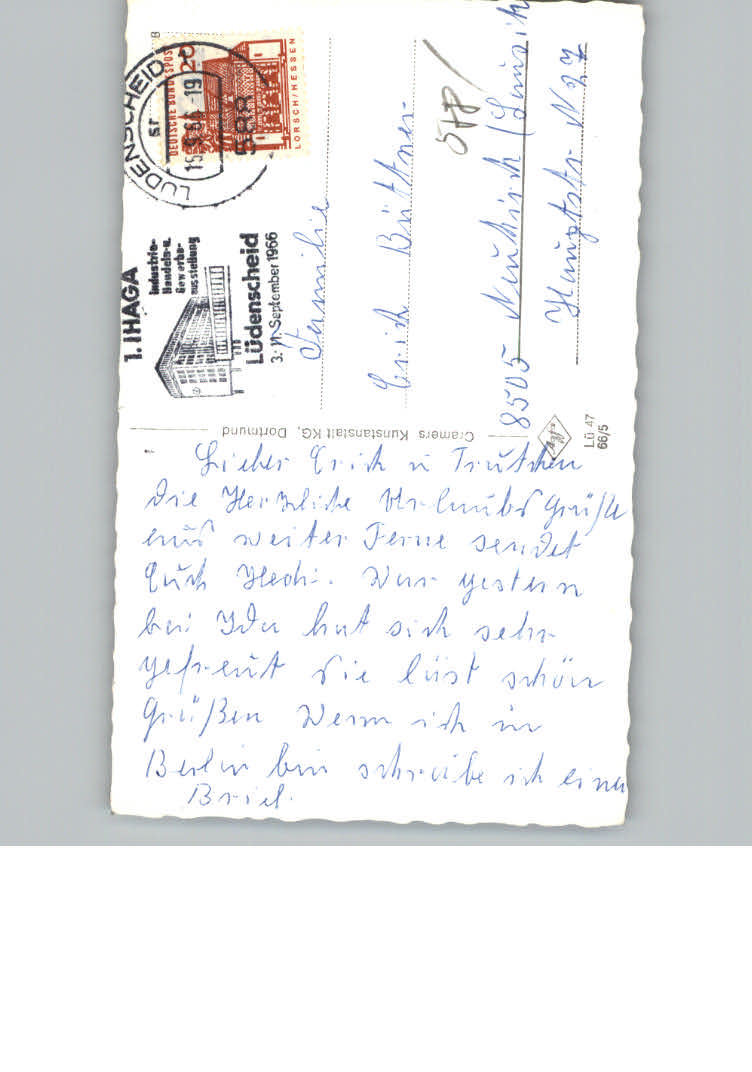 Lieber Erich u Trutchen
die Herzliche Urlaubs Grüße
aus weiter Ferne sendet
Euch Hedi. War gestern
bei Ida hat sich sehr
gefreut Sie läst schön
Grüßen Wenn ich in
Berlin bin schreibe ich einen
Brief.
Familie
Erich Büttner
8505 Neukirch (Lausitz
Hauptstr N 27
LÜDENSCHEID
588
DEUTSCHE BUNDESPOST
20
LORSCH/HESSEN
1. IHAGA
Industrie-
Handels-u.
Gewerbe-
ausstellung
Lüdenscheid
3.-11. September 1966
Cramers Kunstanstalt KG, Dortmund
Lü 47
66/5